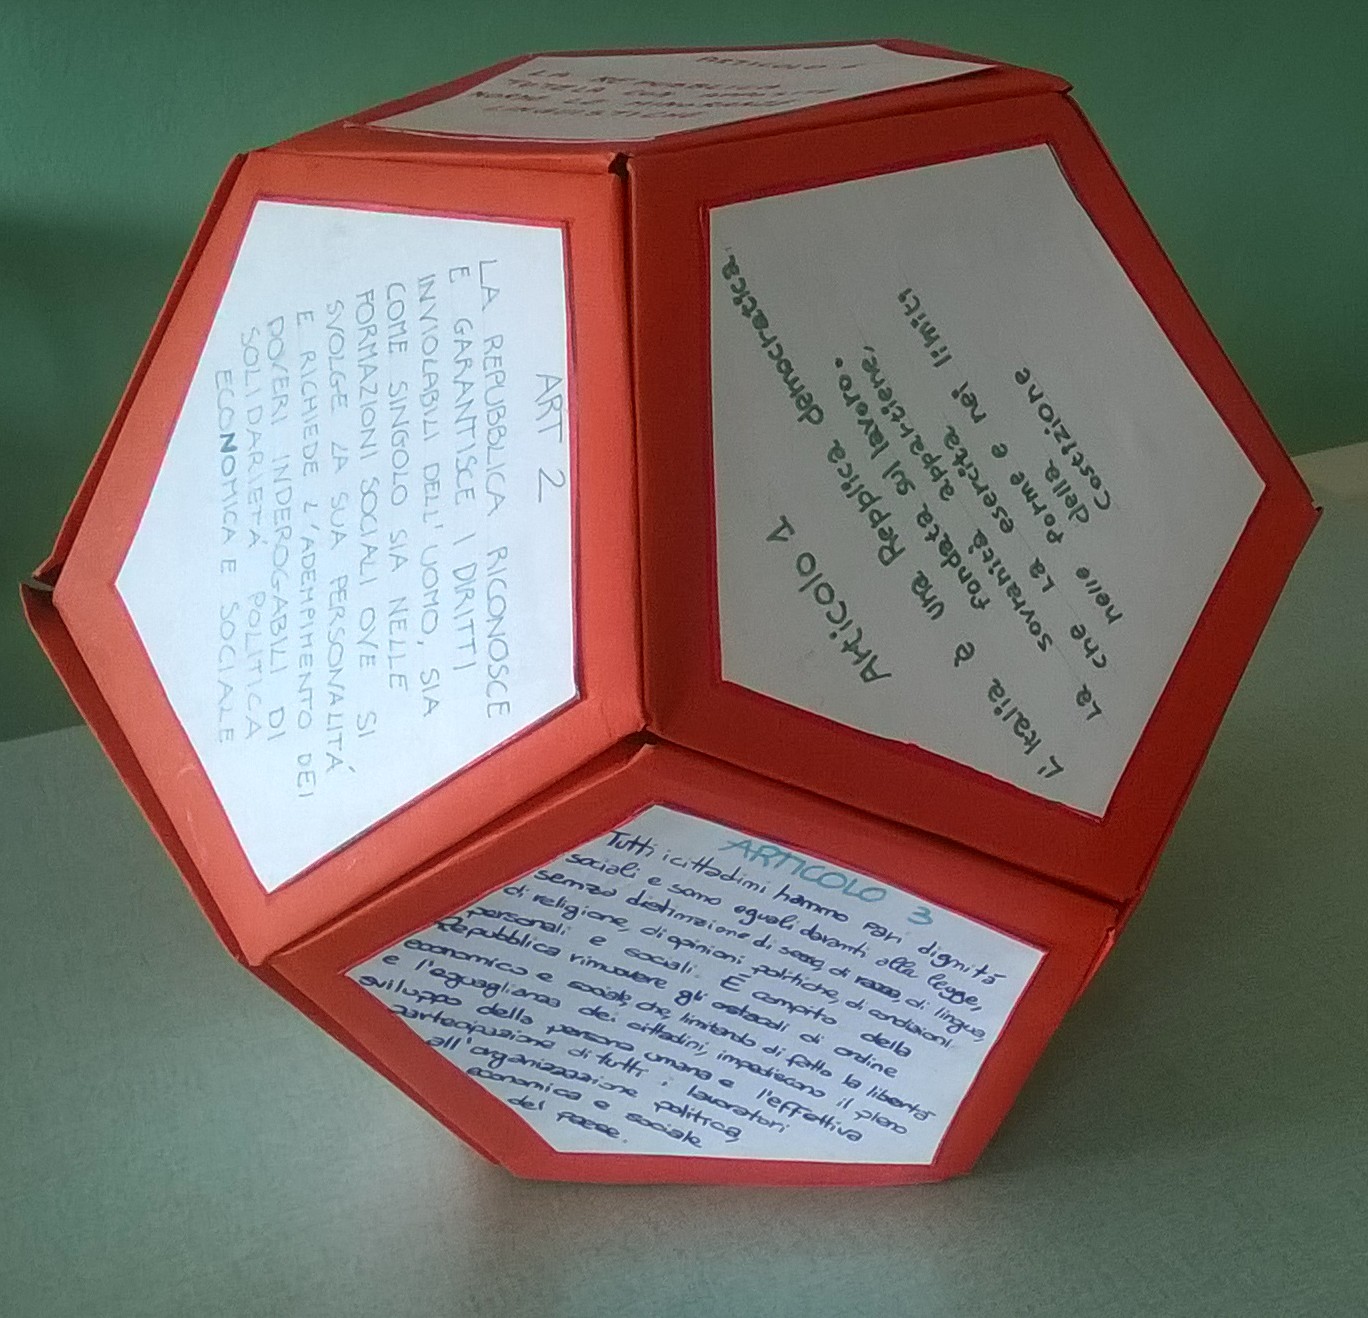 ARTICOLO 6
LA REPUBBLICA
TUTELA CON APPOSITE
NORME LE MINORANZE
LINGUISTICHE
ART 2
LA REPUBBLICA RICONOSCE
E GARANTISCE I DIRITTI
INVIOLABILI DELL'UOMO, SIA
COME SINGOLO SIA NELLE
FORMAZIONI SOCIALI OVE SI
SVOLGE LA SUA PERSONALITÁ
E RICHIEDE L'ADEMPIMENTO DEI
DOVERI INDEROGABILI DI
SOLIDARIETÁ POLITICA
ECONOMICA E SOCIALE
Articolo 1
L'Italia è una Repplica democratica.
fondata sul lavoro.
La sovranità appartiene,
che La esercita
nelle forme e nei limiti
della
Costizione
ARTICOLO 3
Tutti i cittadini hanno pari dignità
sociali e sono eguali davanti alla legge,
senza distinzione di sesso, di razza, di lingua,
di religione, di opinioni politiche, di condizioni
personali e sociali. È compito della
Repubblica rimuovere gli ostacoli di ordine
economico e sociale, che, limitando di fatto la libertà
e l'eguaglianza dei cittadini, impediscono il pieno
sviluppo della persona umana e l'effettiva
partecipazione di tutti i lavoratori
all'organizzazione politica,
economica e sociale
del paese.